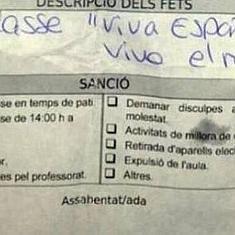 DESCRIPCIÓ DELS FETS
lasse "Viva Españ
Viva el
SANCIÓ
se en temps de pati
se de 14:00 h a
r.
es pel professorat.
Demanar disculpes a
molestat.
Activitats de millora de
Retirada d'aparells elec
Expulsió de l'aula.
Altres.
Assabentat/ada